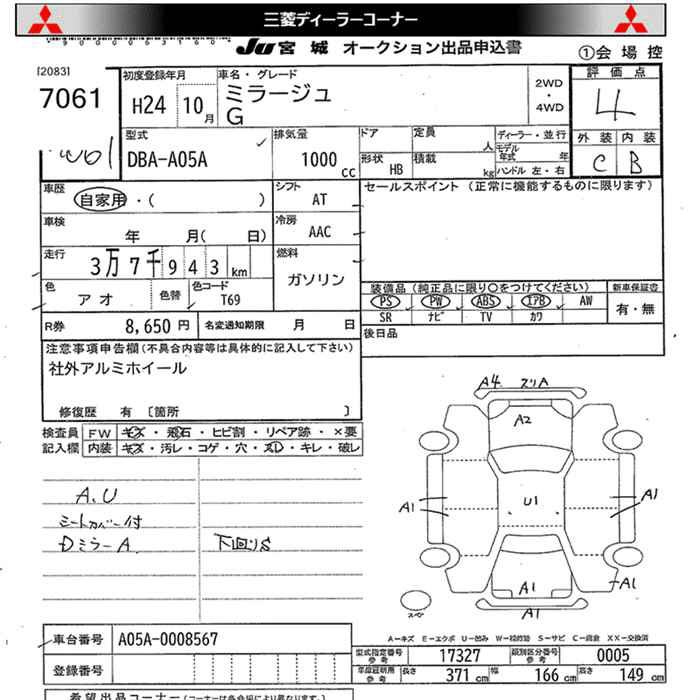 三菱ディーラーコーナー
JU 宮城 オークション出品申込書 ①会場控
[2083]
7061
初度登録年月
H24 10 月
車名・グレード
ミラージュ
G
2WD
・
4WD
評価点
4
外装 内装
C B
型式
DBA-A05A
排気量
1000 cc
ドア
定員 人
形状 HB
積載 kg
ディーラー・並行
モデル年式 年
ハンドル 左・右
車歴
自家用・( )
シフト
AT
セールスポイント (正常に機能するものに限ります)
車検
年 月( 日)
冷房
AAC
走行
3万7千943km
燃料
ガソリン
色
アオ
色替
色コード
T69
装備品 (純正品に限り○をつけてください) 新車保証書
PS PW ABS エアB AW 有・無
SR ナビ TV カワ
R券 8,650 円 名変通知期限 月 日
後日品
注意事項申告欄(不具合内容等は具体的に記入して下さい)
社外アルミホイール
修復歴 有 〔箇所 〕
検査員 FW キズ・飛石・ヒビ割・リペア跡・×要
記入欄 内装 キズ・汚レ・コゲ・穴・スレ・キレ・破レ
A.U
シートカバー付
Dミラー A. 下回りS
A4 スリA
A2
A1 U1 A1
A1
A1
A1
スペア
A-キズ E-エクボ U-凹ミ W-補修跡 S-サビ C-腐食 XX-交換済
車台番号 A05A-0008567
登録番号
型式指定番号 参考 17327 類別区分番号 参考 0005
長さ 371 cm 幅 166 cm 高さ 149 cm
希望出品コーナー